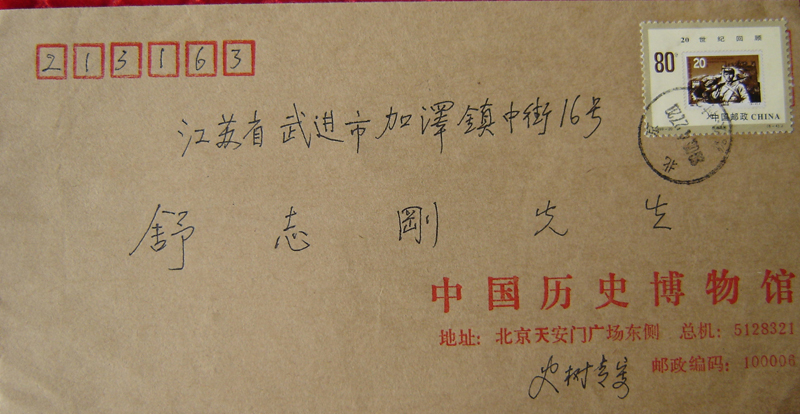 213163
20世纪回顾
80分
20
中国邮政 CHINA
北京
江苏省武进市加澤鎮中街16号
舒志剛先生
中国历史博物馆
地址：北京天安门广场东侧 总机：5128321
邮政编码：100006
史树青